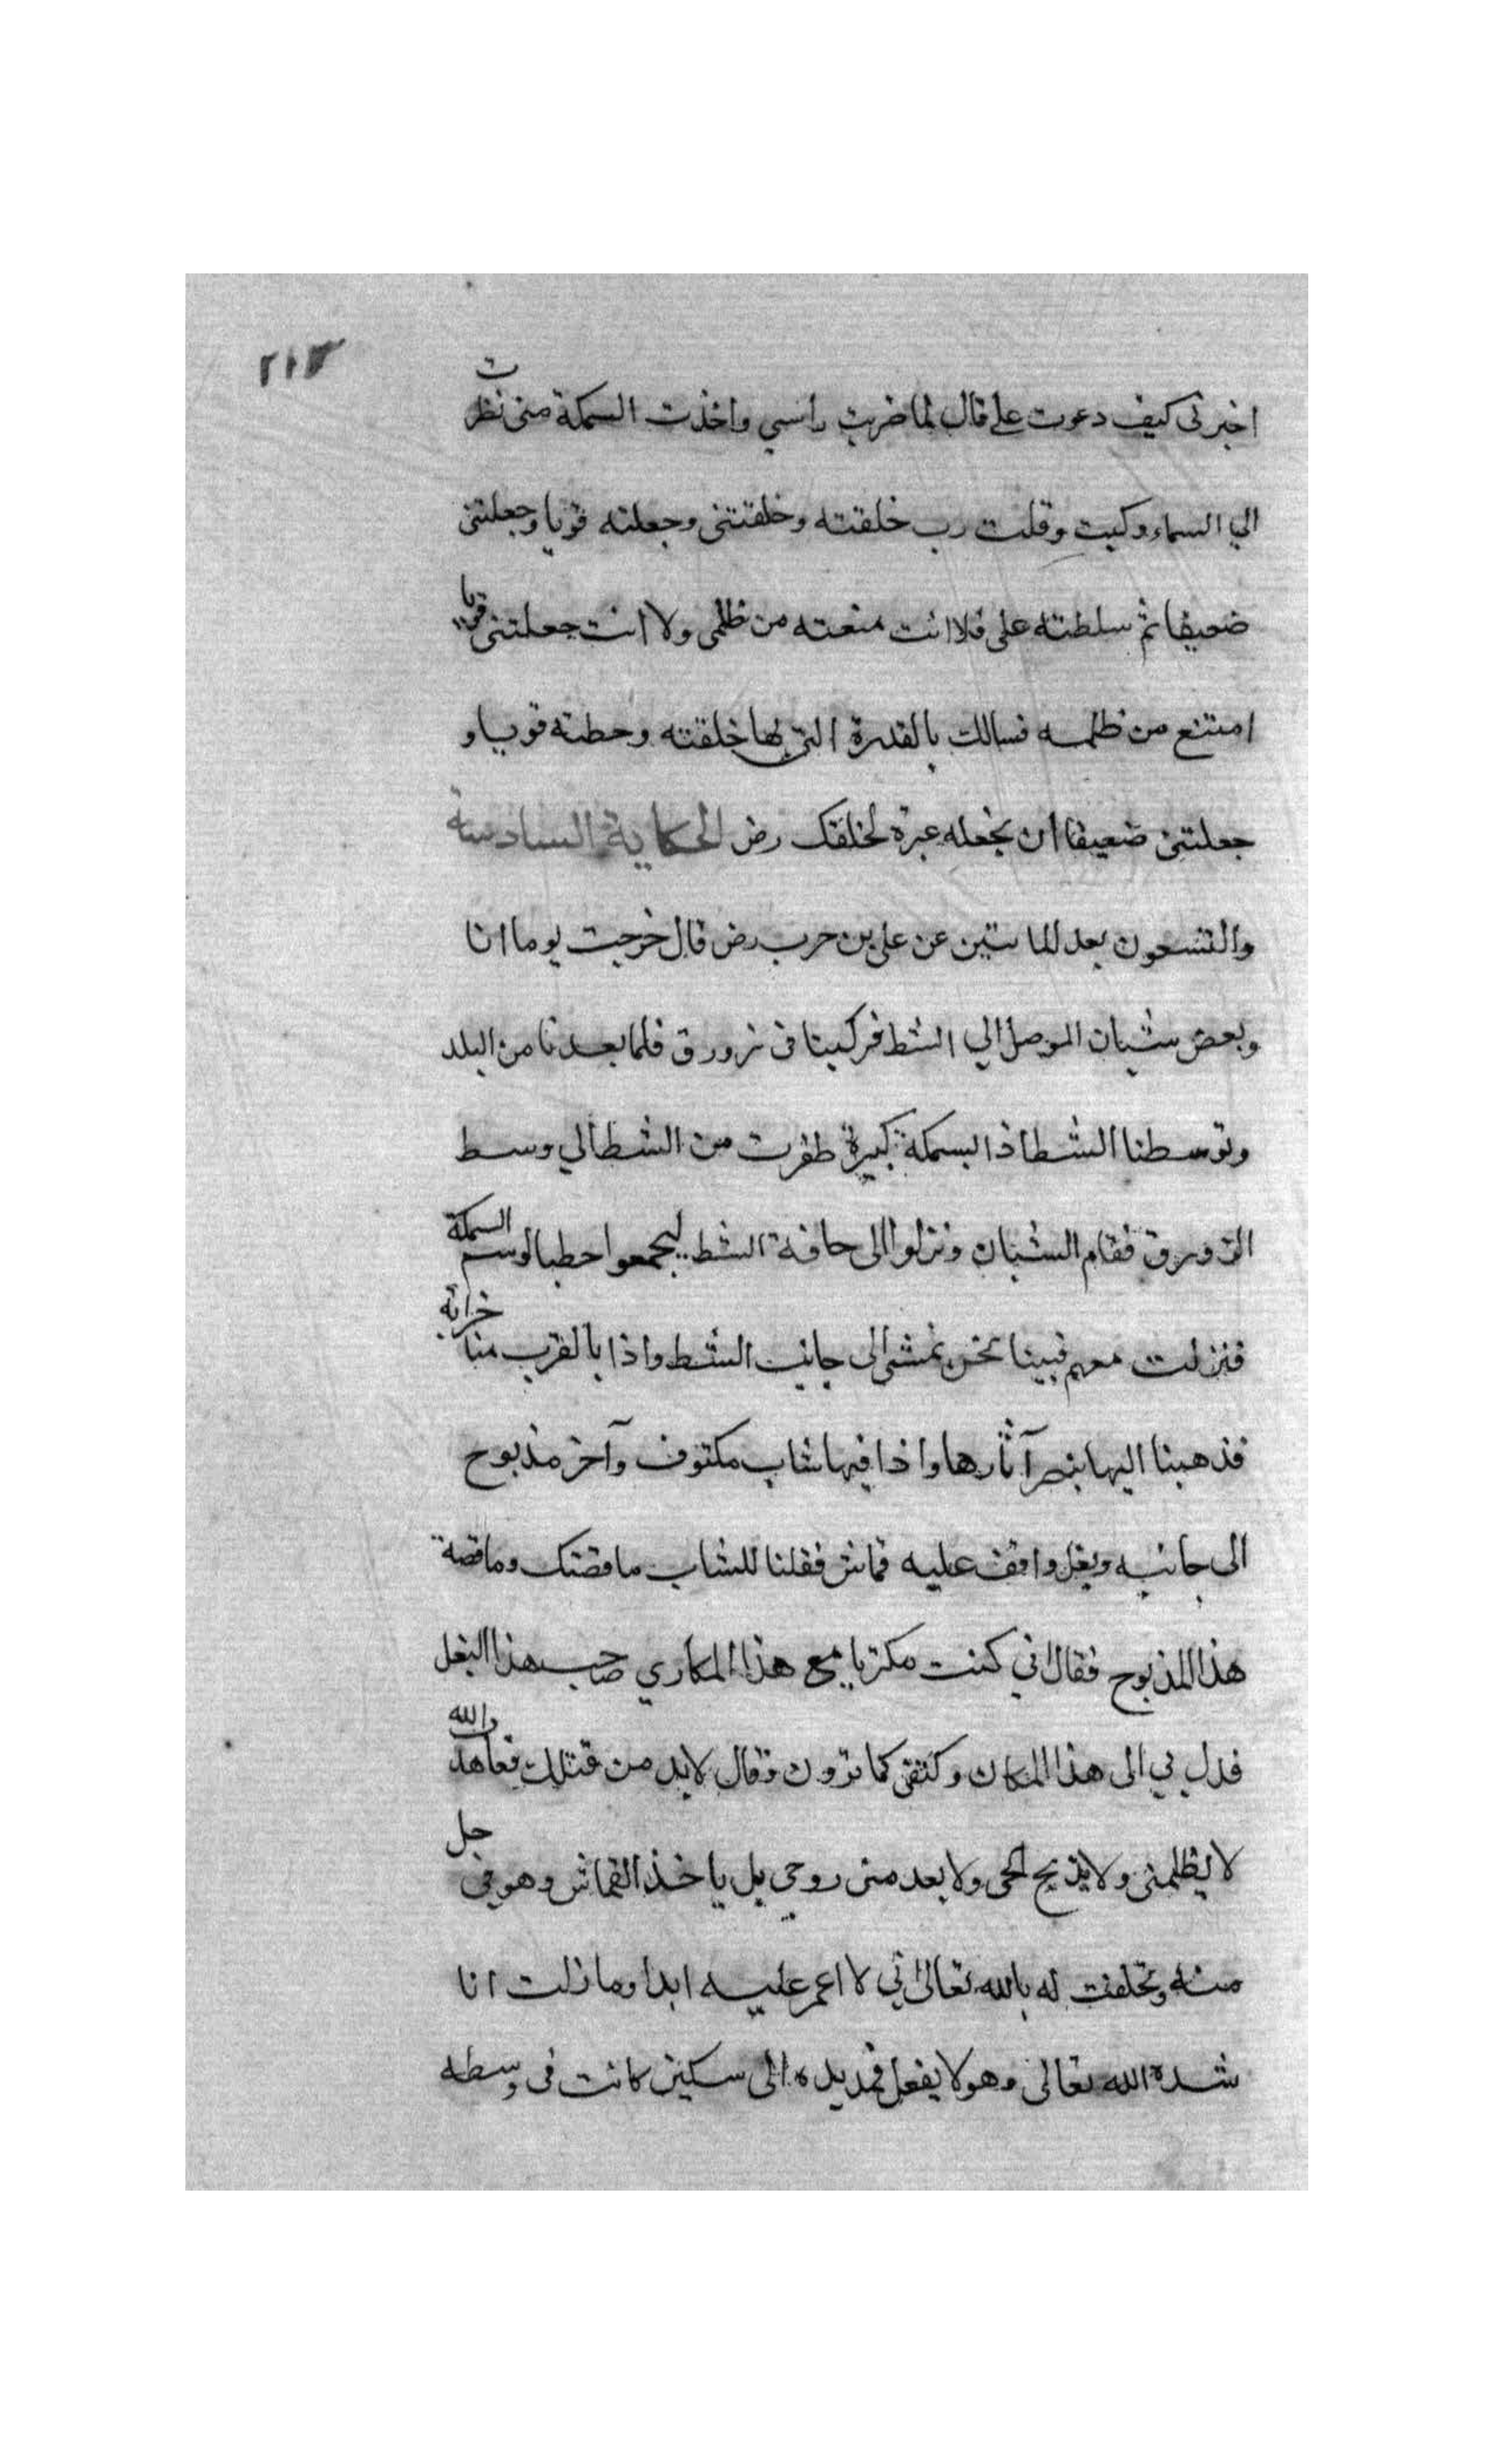 ٢١٣
اخبرنى كيف دعوت على قال لما ضربت راسي واخذت السمكة منى نظرت
الي السماء وكبت وقلت رب خلقته وخلقتنى وجعلته قويا وجعلتنى
ضعيفا ثم سلطته على فلا انت منعته من ظلمى ولا انت جعلتنى قويا
امتنع من ظلمه فسالك بالقدرة التى بها خلقته وحطته قويا و
جعلتنى ضعيفا ان تجعله عبرة لخلقك رض الحكاية السادسة
والتسعون بعد الماستين عن على بن حرب رض قال خرجت يوما انا
وبعض شبان الموصل الي الشط فركبنا فى زورق فلما بعدنا من البلد
وتوسطنا الشط اذا بسمكة كبيرة طفرت من الشط الي وسط
الزورق فقام الشبان ونزلوا الى حافة الشط ليجمعوا حطبا السمكة
فنزلت معهم فبينا نحن نمشى الى جانب الشط واذا بالقرب منا خرابة
فذهبنا اليها آثارها واذا فيها شاب مكتوف وآخر مذبوح
الى جانبه وبغل واقف عليه قماش فقلنا للشاب ما قصتك وما قصة
هذا المذبوح فقال اني كنت مكتريا مع هذا المكاري صاحب هذا البغل
فدل بي الى هذا المكان وكتفنى كما ترون وقال لا بد من قتلك والله
لا يظلمنى ولا يذبح لحمى ولا يعدمنى روحى بل ياخذ القماش وهو فى حل
منه وحلفت له بالله تعالى انى لا اعمر عليه ابدا وما زلت انا
شده الله تعالى وهو لا يفعل فمد يده الى سكين كانت فى وسطه